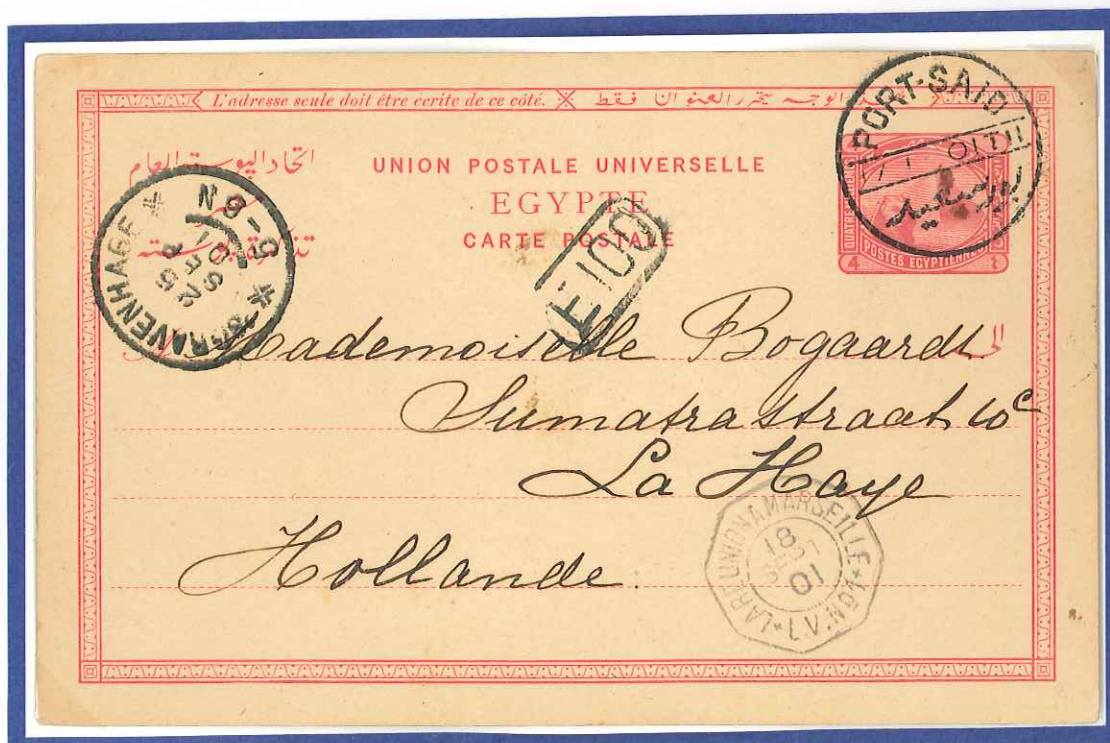 L'adresse seule doit être écrite de ce côté.
اتحاد البوستة العام
UNION POSTALE UNIVERSELLE
EGYPTE
CARTE POSTALE
PORT-SAID
بورسعيد
QUATRE
POSTES EGYPTIENNES
4 ٤
'SGRAVENHAGE
8-9N
E100
Mademoiselle Bogaardt
Sumatrastraat 10c
La Haye
Hollande.
LA REUNION A MARSEILLE
18
SEPT
01
L.V. Nº1